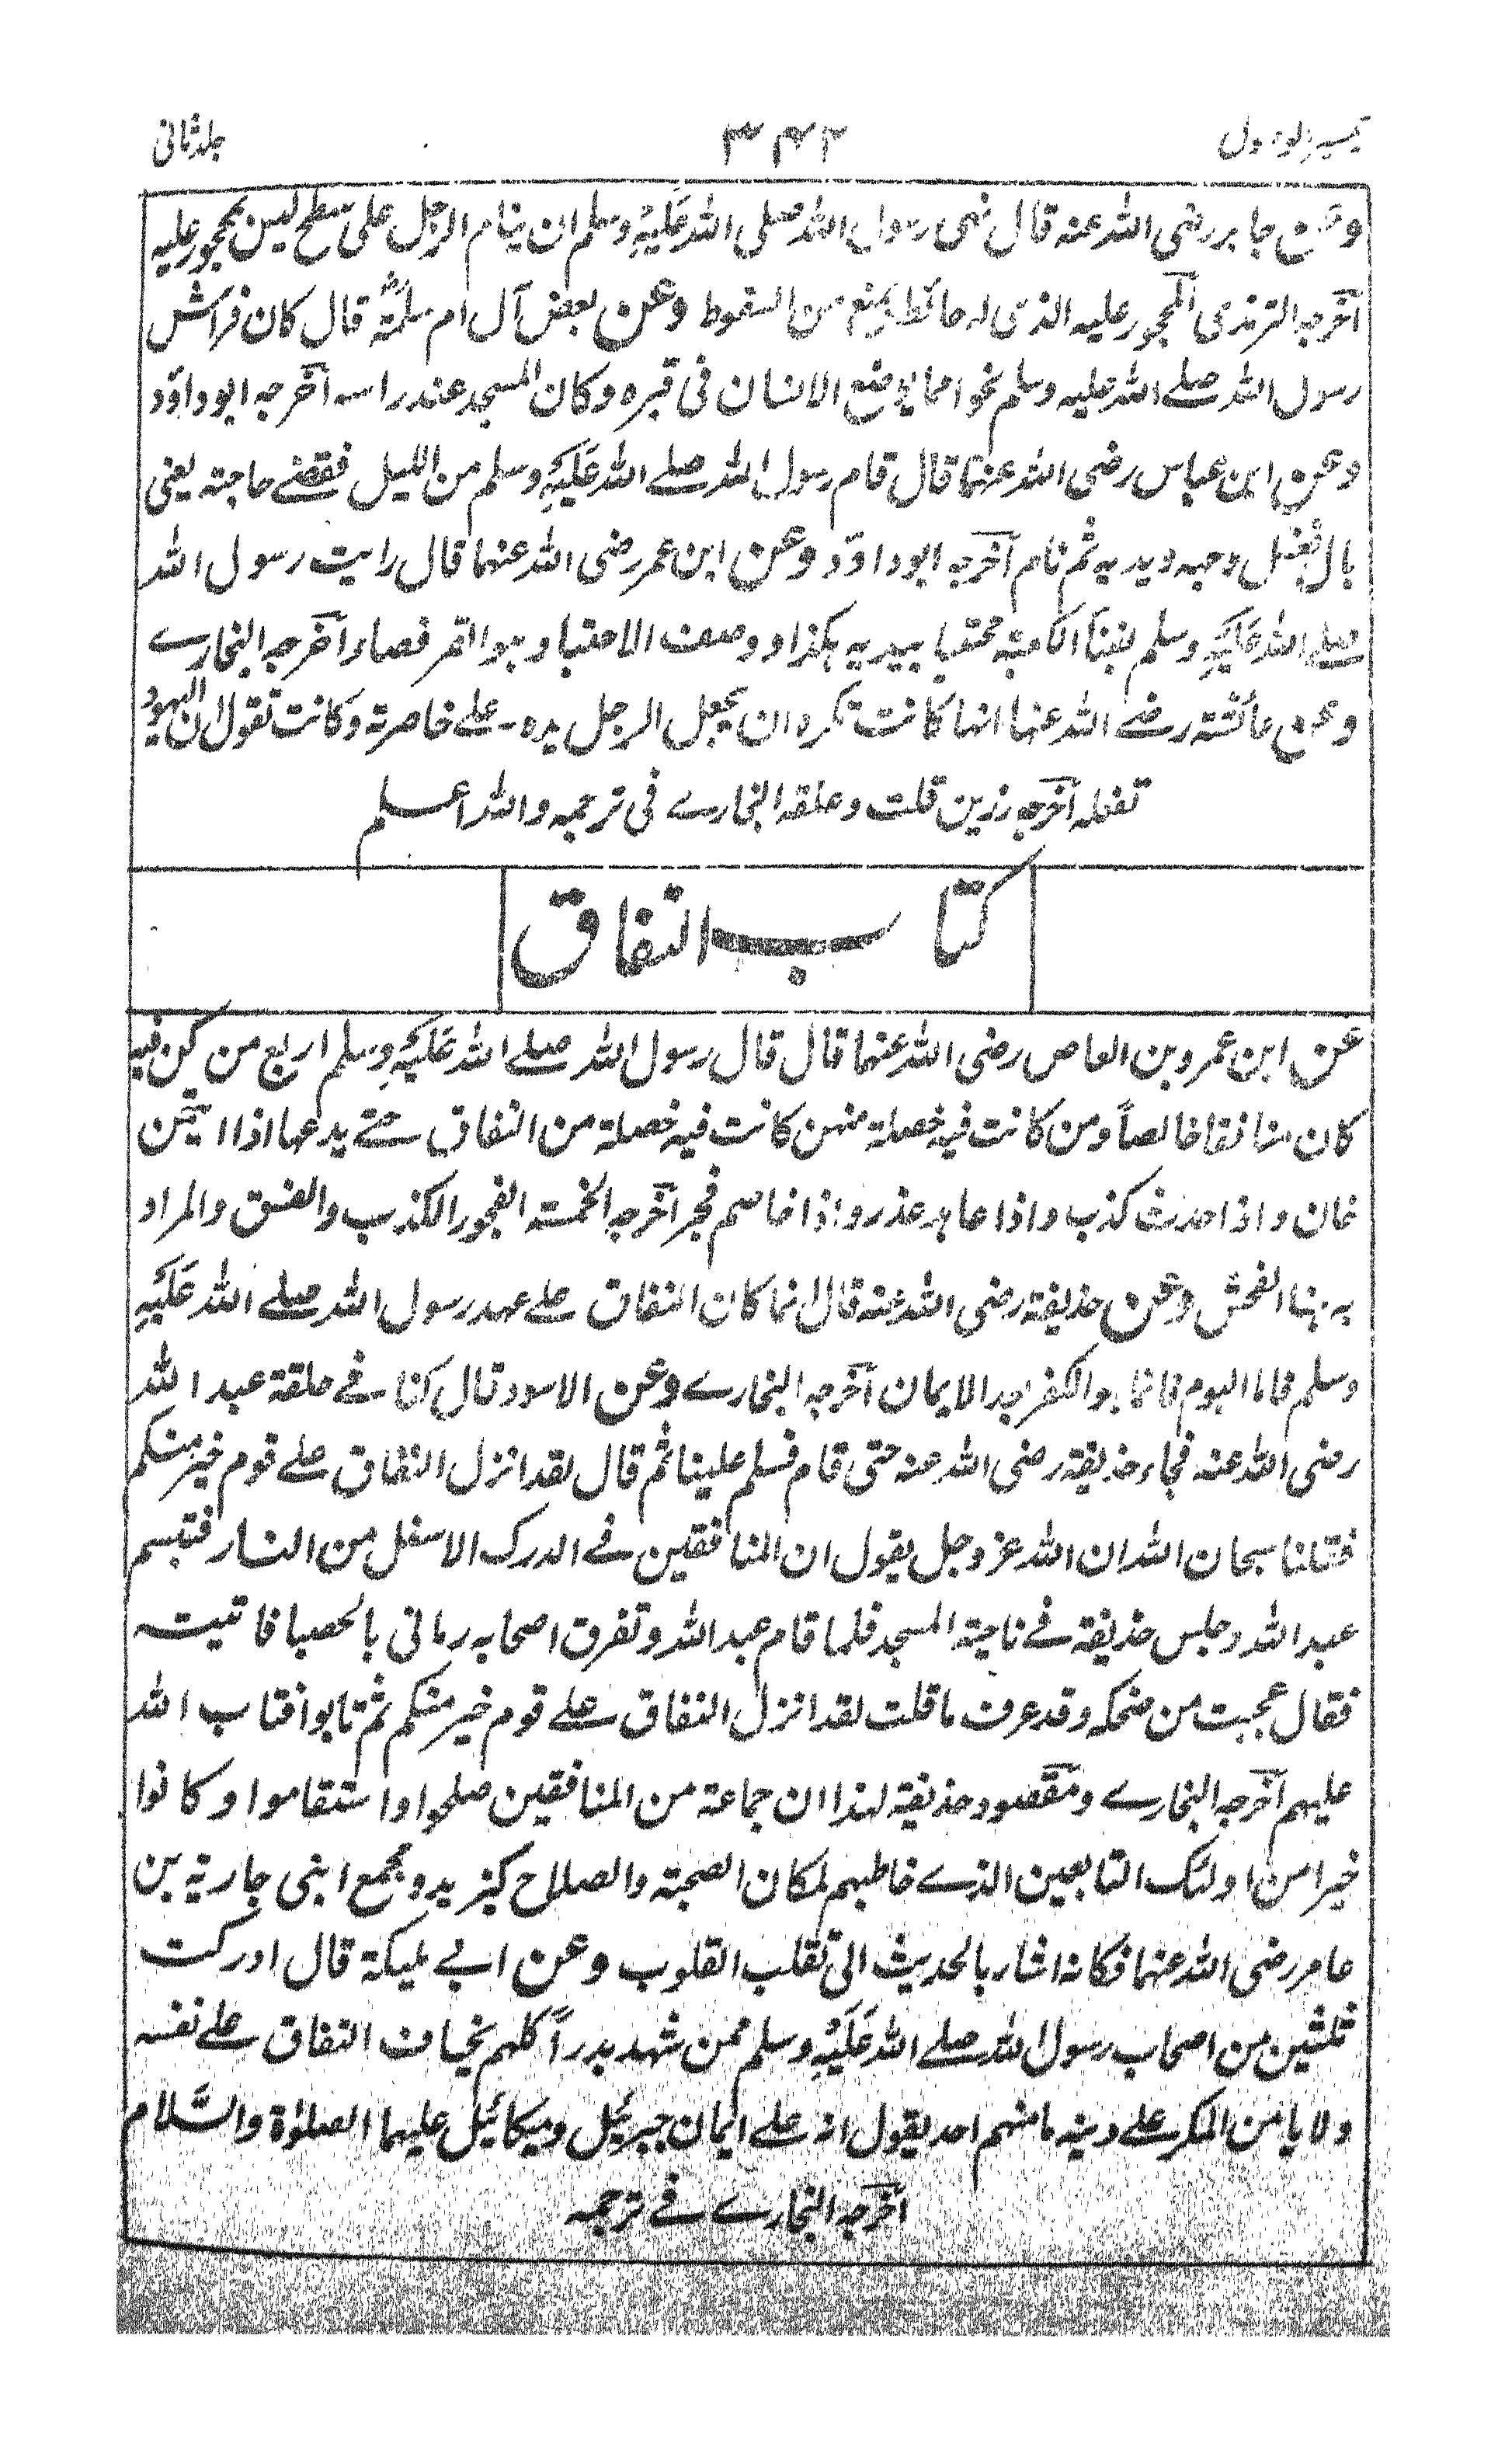 تيسير الوصول ۳۴۲ جلد ثانی
وعن جابر رضی الله عنه قال نهی رسول الله صلی الله عَلَيْهِ وسلم ان ينام الرجل علی سطح ليس بمحجور عليه
اخرجه الترمذی المحجور عليه الذی له حائط يمنع من السقوط وعن بعض آل ام سلمة قال كان فراش
رسول الله صلے الله عليه وسلم نحوا مما يوضع الانسان فی قبره وكان المسجد عند راسه اخرجه ابو داؤد
وعن ابن عباس رضی الله عنهما قال قام رسول الله صلے الله عَلَيْهِ وسلم من الليل فقضے حاجته يعنی
بال فغسل وجهه ويديه ثم نام اخرجه ابو داؤد وعن ابن عمر رضی الله عنهما قال رايت رسول الله
صلے الله عَلَيْهِ وسلم بفناء الكعبة محتبيا بيديه هكذا ووصف الاحتبا وهو القرفصاء اخرجه البخارے
وعن عائشة رضے الله عنها انها كانت تكره ان يجعل الرجل يده علے خاصرته وكانت تقول ان اليهود
تفعله اخرجه رزين قلت وعلقه البخارے فی ترجمه والله اعلم
كتاب النفاق
عن ابن عمرو بن العاص رضی الله عنهما قال قال رسول الله صلے الله عَلَيْهِ وسلم اربع من كن فيه
كان منافقا خالصاً ومن كانت فيه خصلة منهن كانت فيه خصلة من النفاق حتے يدعها اذا ائتمن
خان واذا حدث كذب واذا عاهد غدر واذا خاصم فجر اخرجه الخمسة الفجور الكذب والفسق والمراد
به هنا الفحش وعن حذيفة رضی الله عنه قال انما كان النفاق علے عهد رسول الله صلے الله عَلَيْهِ
وسلم فاما اليوم فانما هو الكفر بعد الايمان اخرجه البخارے وعن الاسود قال كنا فے حلقة عبد الله
رضی الله عنه فجاء حذيفة رضی الله عنه حتی قام فسلم علينا ثم قال لقد انزل النفاق علے قوم خير منكم
فقلنا سبحان الله ان الله عز وجل يقول ان المنافقين فے الدرك الاسفل من النار فتبسم
عبد الله وجلس حذيفة فے ناحية المسجد فلما قام عبد الله وتفرق اصحابه رمانی بالحصبا فاتيته
فقال عجبت من ضحكه وقد عرف ما قلت لقد انزل النفاق علے قوم خير منكم ثم تابوا فتاب الله
عليهم اخرجه البخارے ومقصود حذيفة لهذا ان جماعة من المنافقين صلحوا واستقاموا وكانوا
خيرا من اولئك التابعين الذے خاطبهم لمكان الصحبة والصلاح كيزيد ومجمع ابنی جارية بن
عامر رضی الله عنهما فكانه اشار بالحديث الی تقلب القلوب وعن ابے مليكة قال ادركت
ثلثين من اصحاب رسول الله صلے الله عَلَيْهِ وسلم ممن شهد بدراً كلهم يخاف النفاق علے نفسه
ولا يامن المكر علے دينه ما منهم احد يقول انه علے ايمان جبرئيل وميكائيل عليهما الصلوٰة والسَّلام
اخرجه البخارے فے ترجمه